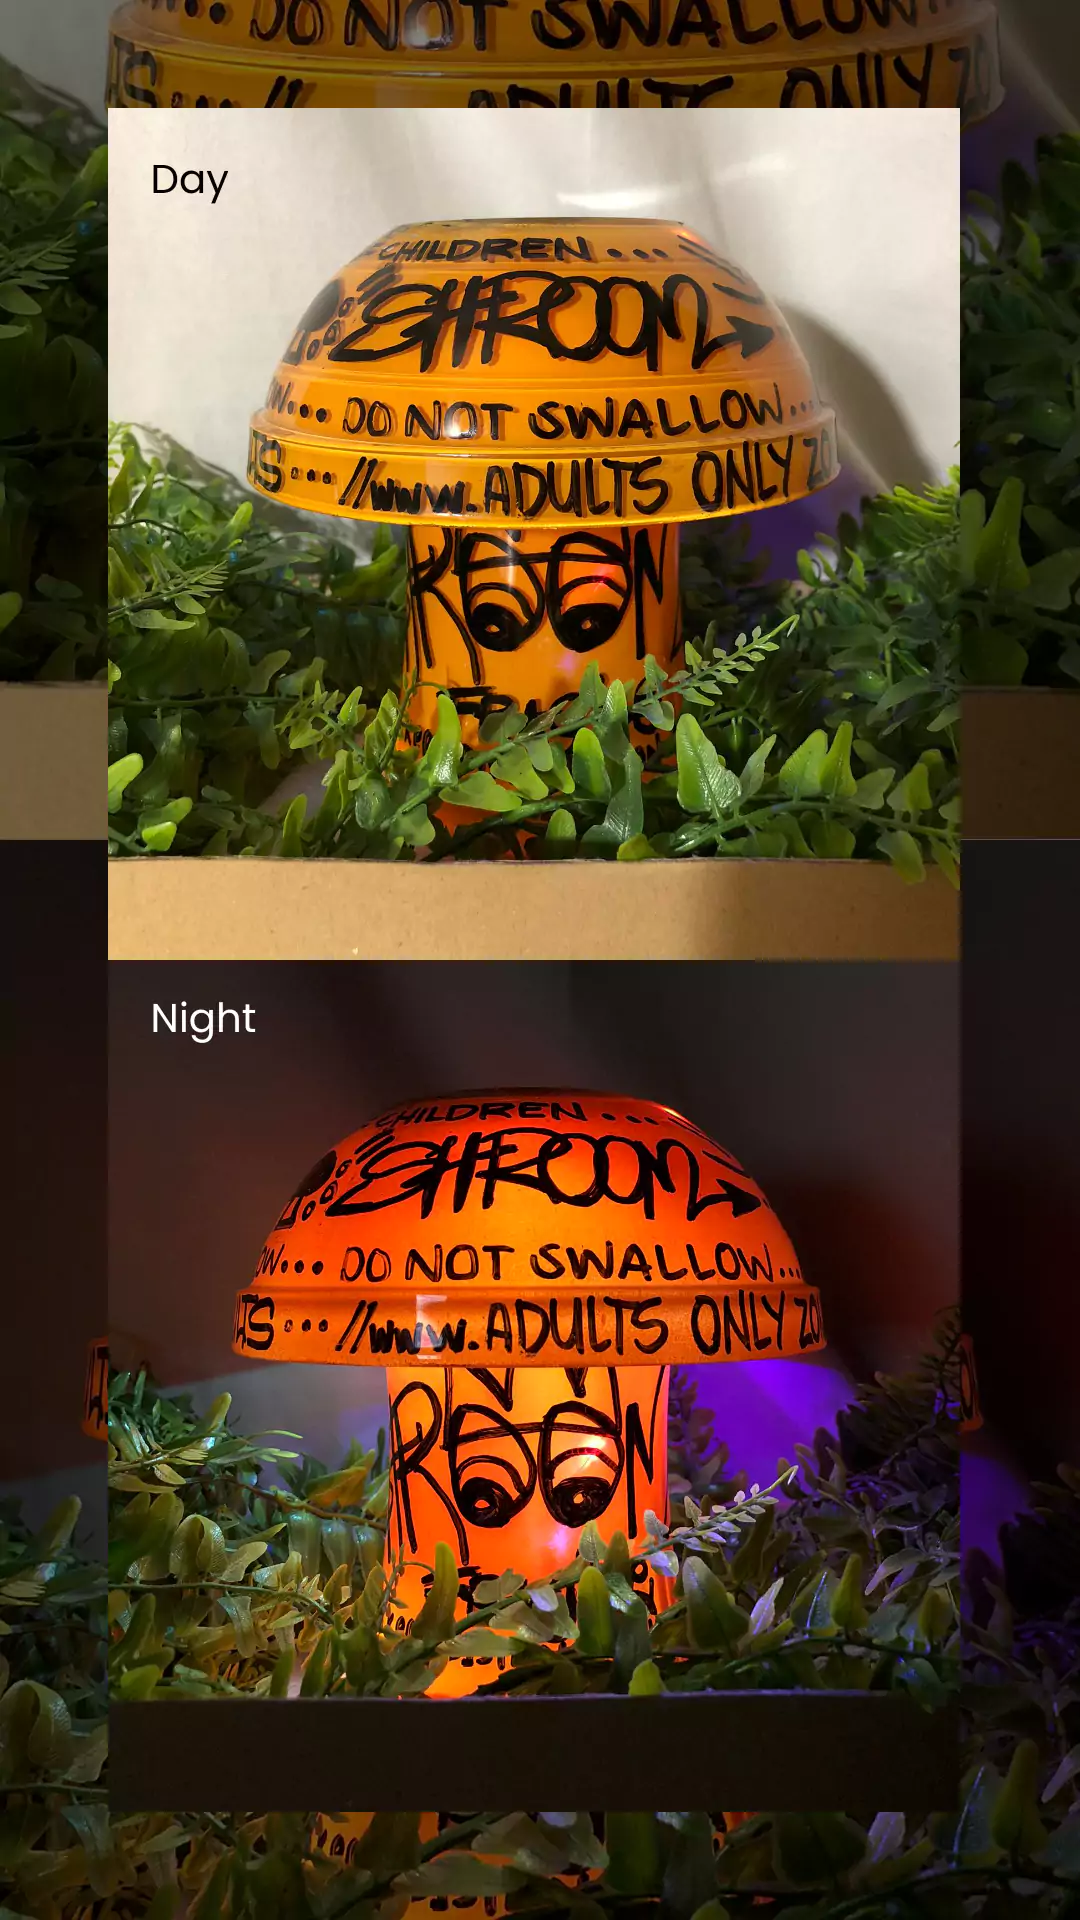 DO NOT SWALLOW...
ADULTS ONLY
Day
CHILDREN...
SHROOM
DO NOT SWALLOW...
//www.ADULTS ONLY ZO
Night
CHILDREN...
SHROOM
DO NOT SWALLOW...
//www.ADULTS ONLY ZO